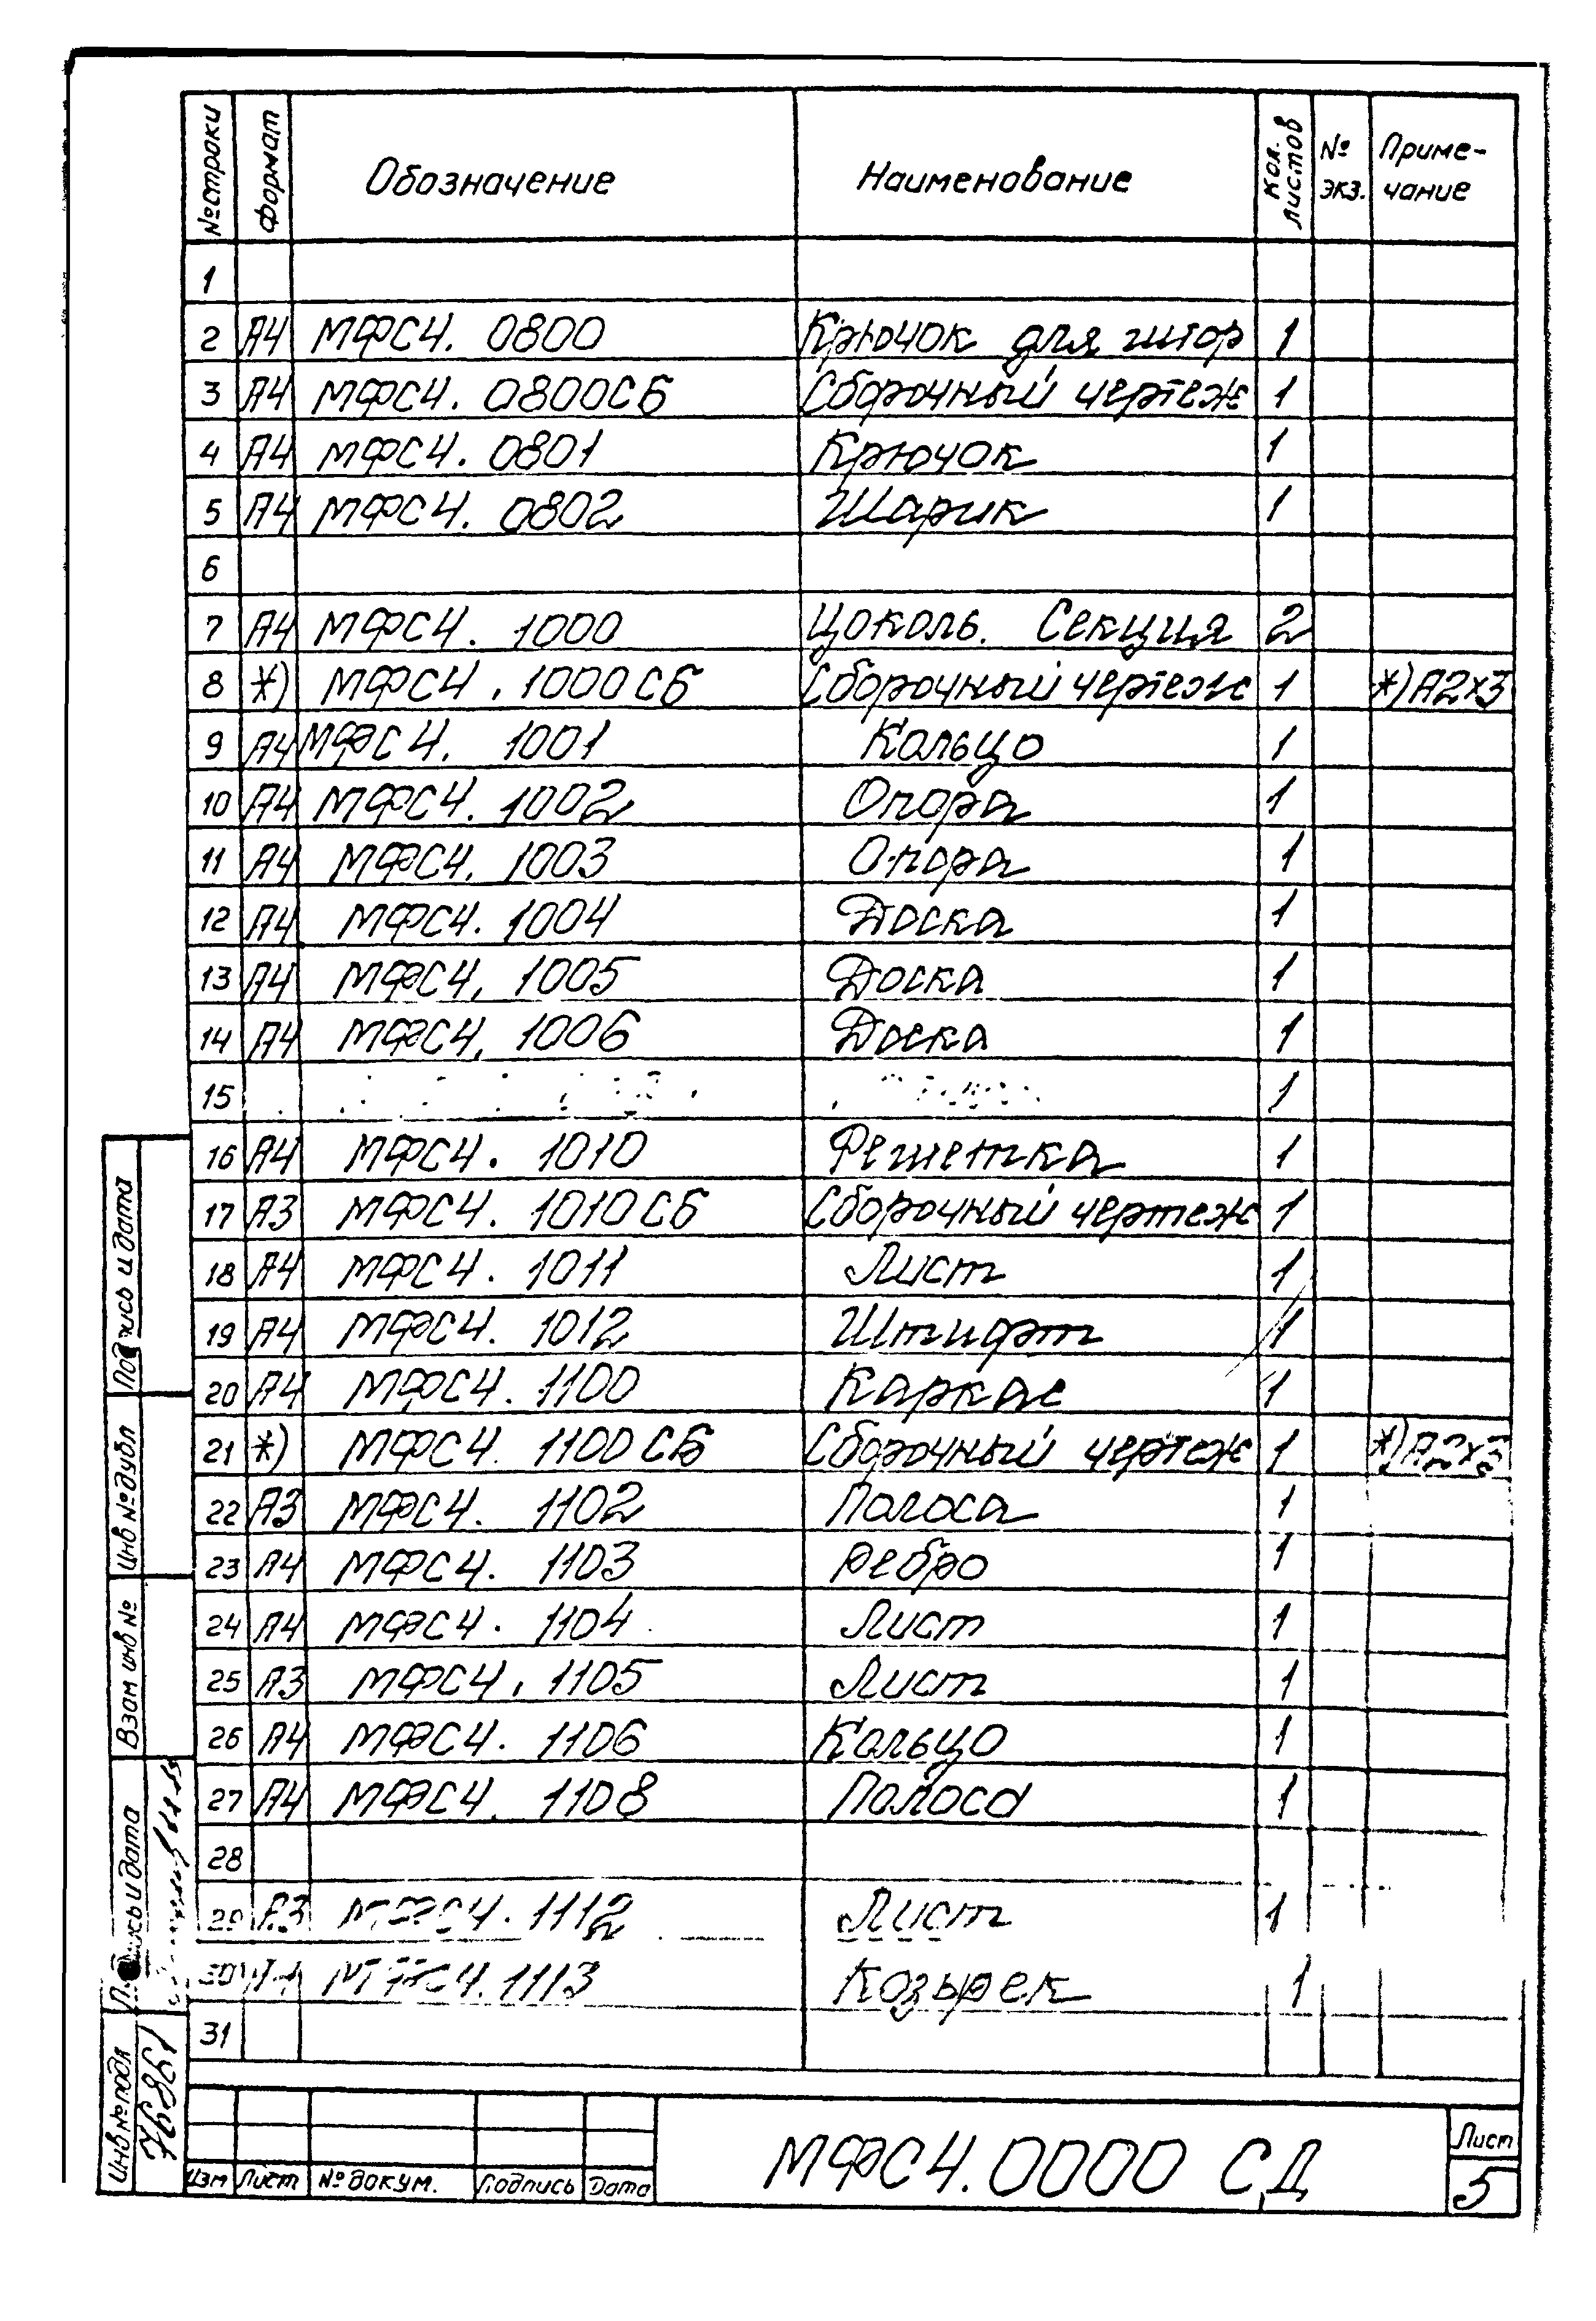 № строки Формат Обозначение Наименование Кол. листов № экз. Приме-чание
1
2 А4 МФС4. 0800 Крючок для штор 1
3 А4 МФС4. 0800СБ Сборочный чертеж 1
4 А4 МФС4. 0801 Крючок 1
5 А4 МФС4. 0802 Шарик 1
6
7 А4 МФС4. 1000 Цоколь. Секция 2
8 *) МФС4. 1000СБ Сборочный чертеж 1 *)А2х3
9 А4 МФС4. 1001 Кольцо 1
10 А4 МФС4. 1002 Опора 1
11 А4 МФС4. 1003 Опора 1
12 А4 МФС4. 1004 Доска 1
13 А4 МФС4. 1005 Доска 1
14 А4 МФС4. 1006 Доска 1
15 1
16 А4 МФС4. 1010 Решетка 1
17 А3 МФС4. 1010СБ Сборочный чертеж 1
18 А4 МФС4. 1011 Лист 1
19 А4 МФС4. 1012 Штифт 1
20 А4 МФС4. 1100 Каркас 1
21 *) МФС4. 1100СБ Сборочный чертеж 1 *)А2х3
22 А3 МФС4. 1102 Полоса 1
23 А4 МФС4. 1103 Ребро 1
24 А4 МФС4. 1104 Лист 1
25 А3 МФС4. 1105 Лист 1
26 А4 МФС4. 1106 Кольцо 1
27 А4 МФС4. 1108 Полоса 1
28
29 А3 МФС4. 1112 Лист 1
30 А4 МФС4. 1113 Козырек 1
31
Подпись и дата
Инв № дубл
Взам инв №
Подпись и дата
Инв № подл
Изм Лист № докум. Подпись Дата
МФС4.0000 СД
Лист
5